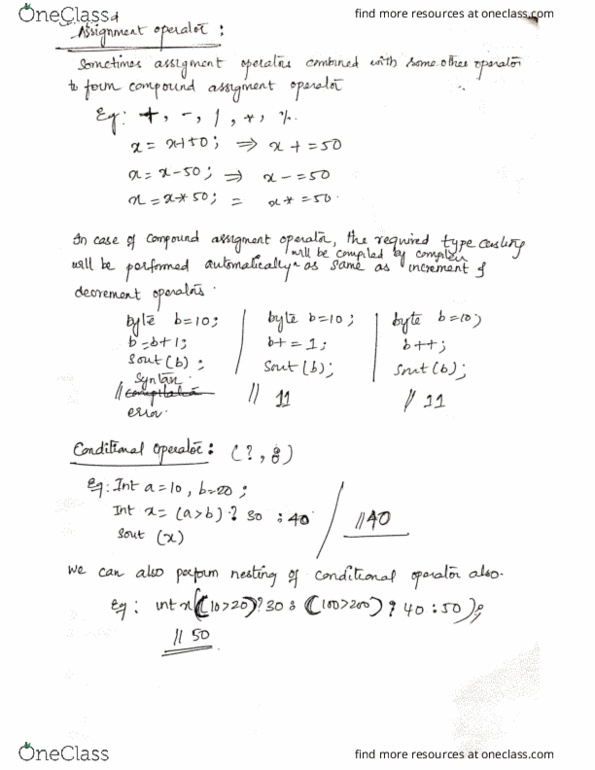 OneClass
find more resources at oneclass.com
Assignment operator :
Sometimes assigment operators combined with some other operator
to form compound assigment operator
Eg: +, -, /, *, %.
x = x+50; ⇒ x + = 50
x = x-50; ⇒ x - = 50
x = x* 50; = x* = 50.
In case of compound assigment operator, the required type casting
will be compiled by compiler
will be performed automatically as same as increment &
decrement operators.
byte b=10; byte b=10; byte b=10;
b=b+1; b+ = 1; b++;
Sout(b); Sout(b); Sout(b);
Syntax // 11 // 11
//
error.
Conditional operator: (?, :)
Eg: Int a=10, b=20;
Int x= (a>b) ? 30 : 40 //40
Sout (x)
We can also perform nesting of conditional operator also.
Eg: int x((10>20)?30:(100>200)? 40:50);
// 50
OneClass
find more resources at oneclass.com